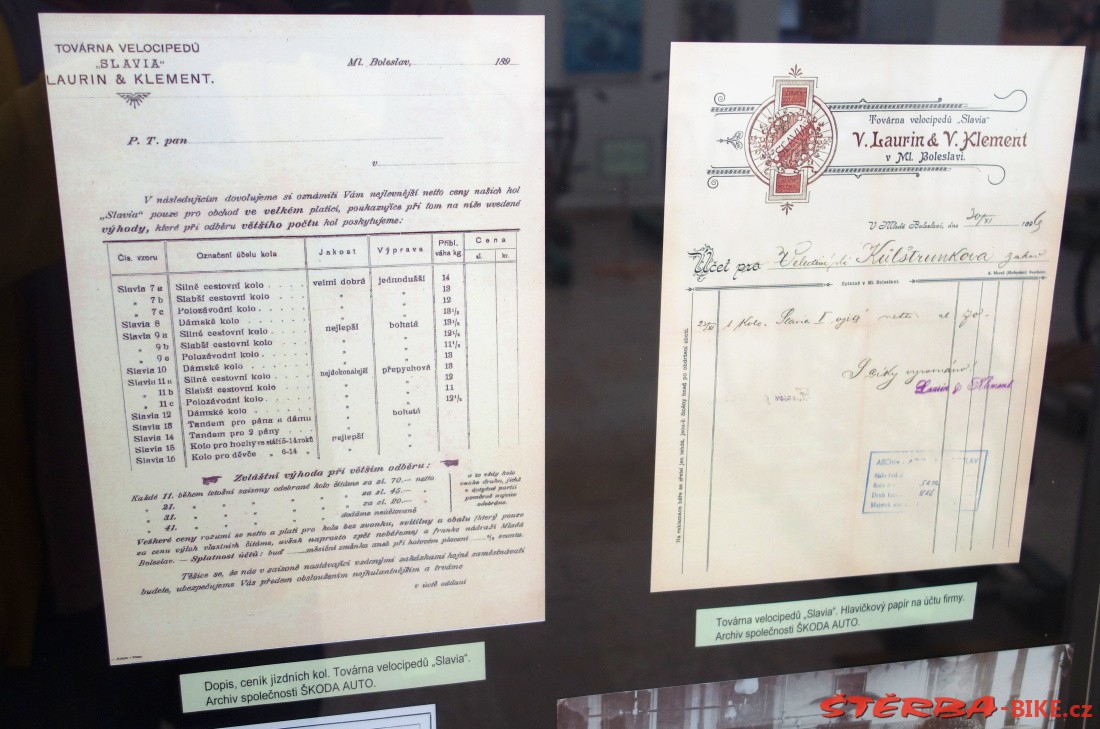 TOVÁRNA VELOCIPEDŮ
„SLAVIA“
LAURIN & KLEMENT.
Ml. Boleslav, 189
P. T. pan
v
V následujícím dovolujeme si oznámiti Vám nejlevnější netto ceny našich kol
„Slavia“ pouze pro obchod ve velkém platící, poukazujíce při tom na níže uvedené
výhody, které při odběru většího počtu kol poskytujeme:
Čís. vzoru Označení účelu kola Jakost Výprava Přibl. váha kg. Cena
zl. kr.
Slavia 7 a Silné cestovní kolo velmi dobrá jednodušší 14
„ 7 b Slabší cestovní kolo „ „ 13
„ 7 c Polozávodní kolo „ „ 12
Slavia 8 Dámské kolo „ „ 13½
Slavia 9 a Silné cestovní kolo nejlepší bohatá 13½
„ 9 b Slabší cestovní kolo „ „ 12½
„ 9 c Polozávodní kolo „ „ 11½
Slavia 10 Dámské kolo „ „ 13
Slavia 11 a Silné cestovní kolo nejdokonalejší přepychová 13
„ 11 b Slabší cestovní kolo „ „ 12
„ 11 c Polozávodní kolo „ „ 11
Slavia 12 Dámské kolo „ „ 12½
Slavia 13 Tandem pro pána a dámu „ bohatá
Slavia 14 Tandem pro 2 pány „ „
Slavia 15 Kolo pro hochy ve stáří 5-14 roků nejlepší „
Slavia 16 Kolo pro děvče „ 6-14 „ „ „
Zvláštní výhoda při větším odběru:
Každé 11. během letošní saisony odebrané kolo čítáme za zl. 70.— netto
„ 21. „ „ „ „ „ „ za zl. 45.— „
„ 31. „ „ „ „ „ „ za zl. 20.— „
„ 41. „ „ „ „ „ dodáme neúčtovaně
Veškeré ceny rozumí se netto a platí pro kola bez zvonku, svítilny a obalu (který pouze
za cenu výloh vlastních čítáme, avšak naprosto zpět nebéřeme) a franko nádraží Mladá
Boleslav. — Splatnost účtů: buď měsíční směnka aneb při hotovém placení % sconta.
Těšíce se, že nás v saisoně nastávající vzácnými zakázkami hojně zaměstnávati
budete, ubezpečujeme Vás předem obsloužením nejkulantnějším a trváme
v úctě oddaní
Dopis, ceník jízdních kol. Továrna velocipedů „Slavia“.
Archiv společnosti ŠKODA AUTO.
SLAVIA
Továrna velocipedů „Slavia“
V. Laurin & V. Klement
v Ml. Boleslavi.
V Mladé Boleslavi, dne 20/XI 189
Účet pro
Splatno v Ml. Boleslavi.
1 Kolo Slavia
Laurin & Klement
Na reklamace béře se zřetel jen tenkráte, jsou-li činěny hned po obdržení zboží.
Továrna velocipedů „Slavia“. Hlavičkový papír na účtu firmy.
Archiv společnosti ŠKODA AUTO.
ŠTĚRBA-BIKE.cz